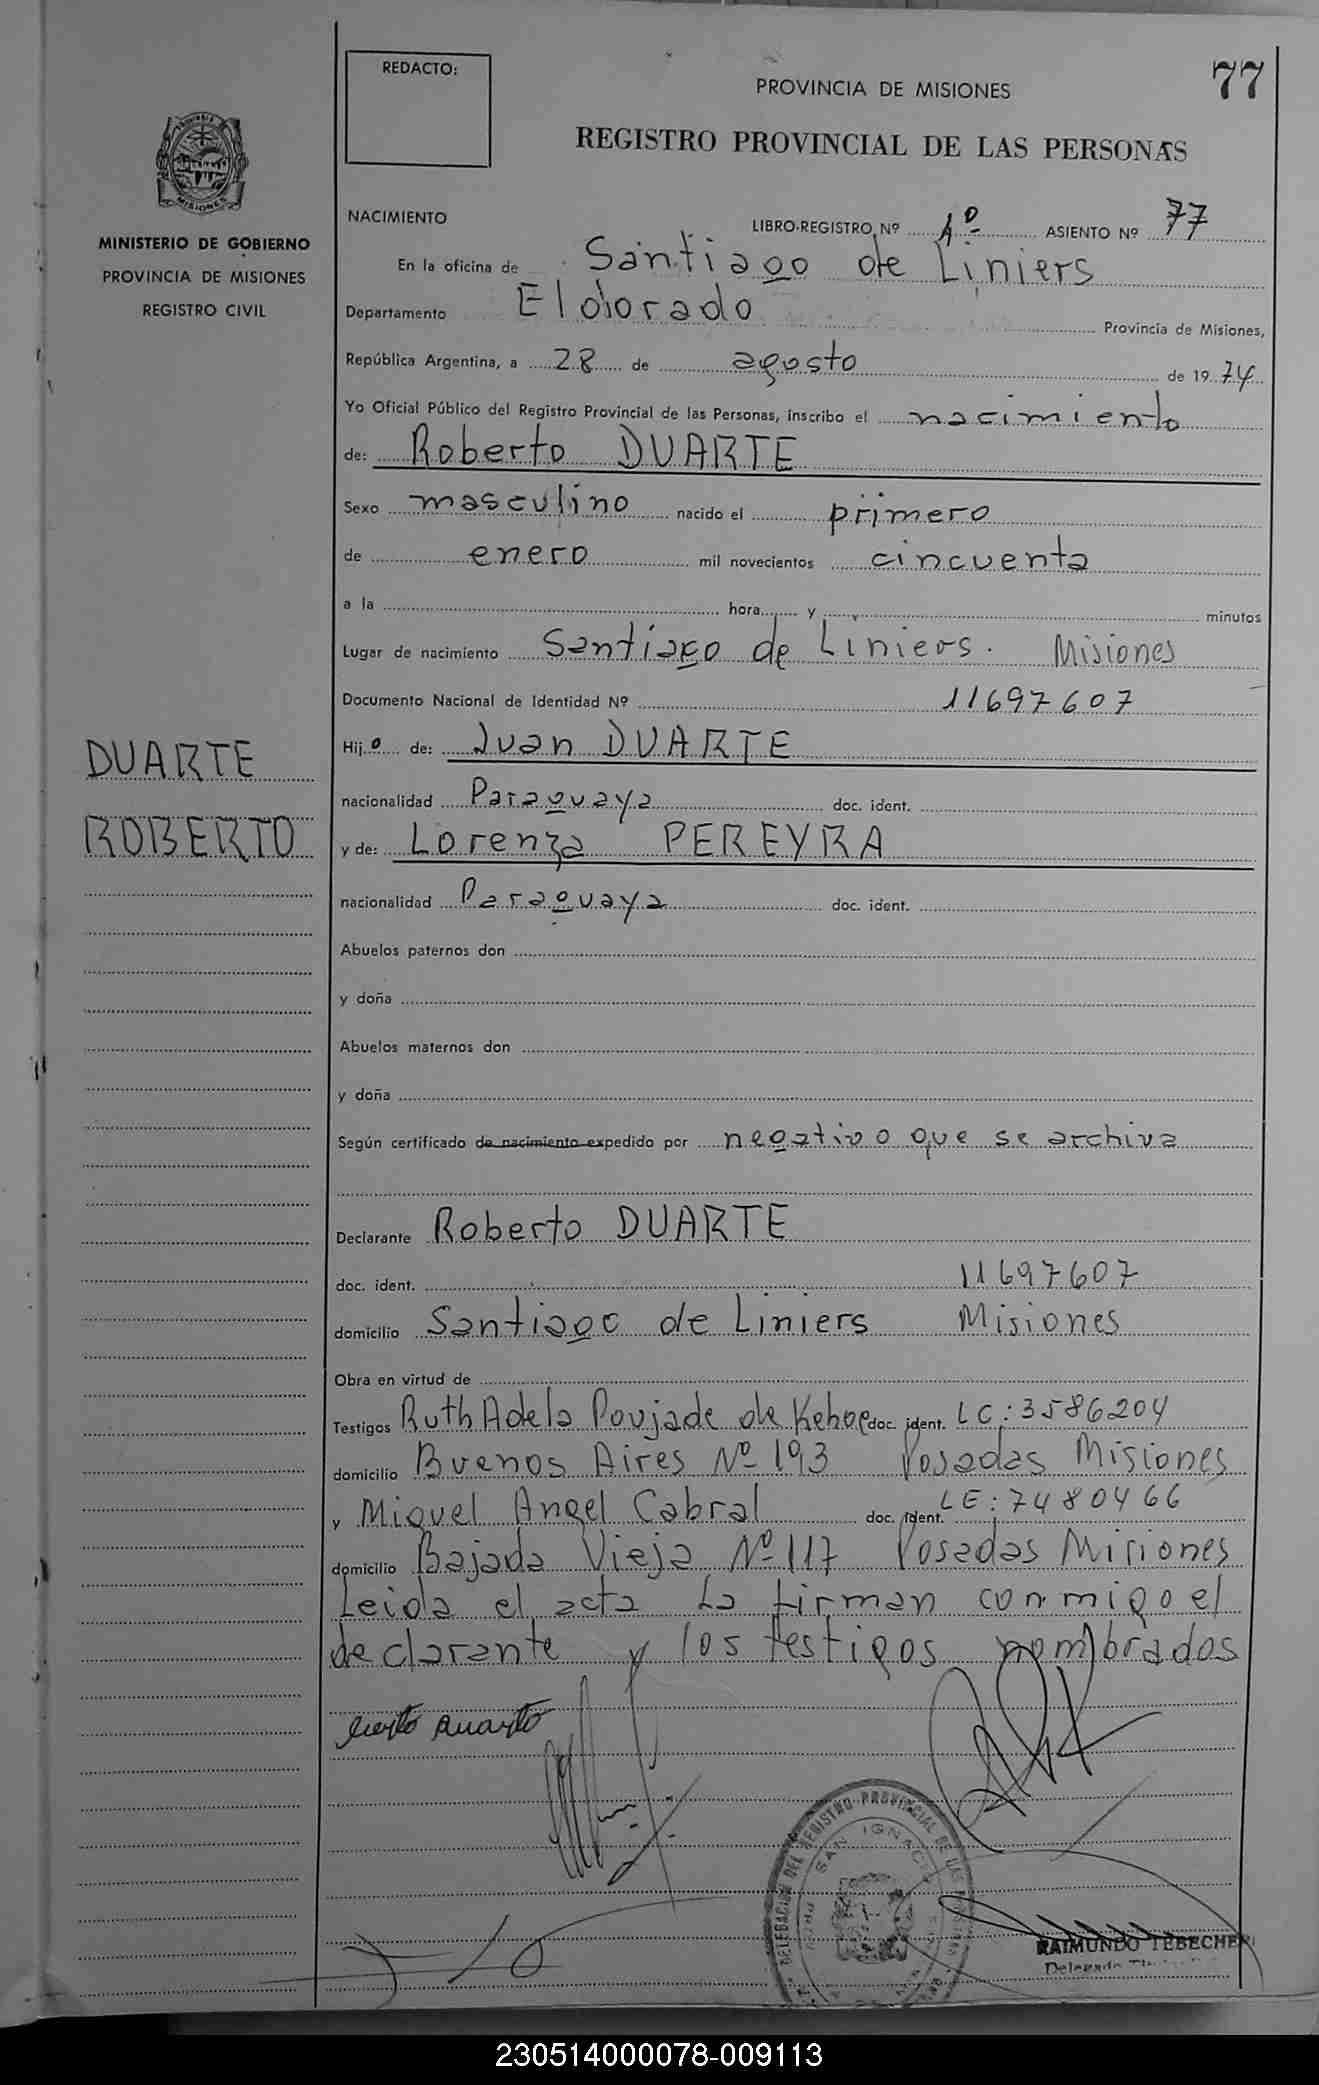 77
REDACTO:
PROVINCIA DE MISIONES
REGISTRO PROVINCIAL DE LAS PERSONAS
MINISTERIO DE GOBIERNO
PROVINCIA DE MISIONES
REGISTRO CIVIL
NACIMIENTO
LIBRO-REGISTRO Nº 1º ASIENTO Nº 77
En la oficina de Santiago de Liniers
Departamento Eldorado Provincia de Misiones,
República Argentina, a 28 de agosto de 1974
Yo Oficial Público del Registro Provincial de las Personas, inscribo el nacimiento
de: Roberto DUARTE
Sexo masculino nacido el primero
de enero mil novecientos cincuenta
a la hora y minutos
Lugar de nacimiento Santiago de Liniers. Misiones
Documento Nacional de Identidad Nº 11697607
Hijo de: Juan DUARTE
nacionalidad Paraguaya doc. ident.
y de: Lorenza PEREYRA
nacionalidad Paraguaya doc. ident.
DUARTE
ROBERTO
Abuelos paternos don
y doña
Abuelos maternos don
y doña
Según certificado de nacimiento expedido por negativo que se archiva
Declarante Roberto DUARTE
doc. ident. 11697607
domicilio Santiago de Liniers Misiones
Obra en virtud de
Testigos Ruth Adela Poujade de Kehoe doc. ident. LC: 3586204
domicilio Buenos Aires Nº 193 Posadas Misiones
y Miguel Angel Cabral doc. ident. LE: 7480466
domicilio Bajada Vieja Nº 117 Posadas Misiones
Leida el acta la firman conmigo el
declarante y los testigos nombrados
DELEGACION DEL REGISTRO PROVINCIAL DE LAS
SAN IGNACIO
RAIMUNDO TEBECHERI
Delegado
230514000078-009113